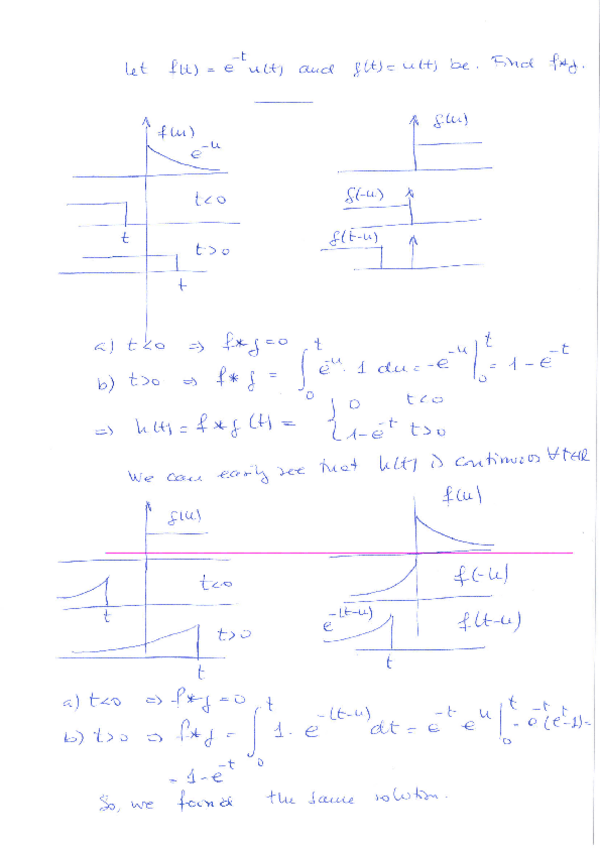 Let f(t) = e^{-t} u(t) and g(t) = u(t) be. Find f*g.
f(u)
e^{-u}
g(u)
t<0
g(-u)
t
t>0
g(t-u)
t
a) t<0 ⇒ f*g = 0
b) t>0 ⇒ f*g = ∫_0^t e^{-u} · 1 du = -e^{-u} |_0^t = 1 - e^{-t}
⇒ h(t) = f*g (t) = { 0 t<0
1-e^{-t} t>0
We can easily see that h(t) is continuos ∀t∈R
g(u)
f(u)
t<0
f(-u)
t
t>0
e^{-(t-u)}
f(t-u)
t
t
a) t<0 ⇒ f*g = 0
b) t>0 ⇒ f*g = ∫_0^t 1 · e^{-(t-u)} dt = e^{-t} e^{u} |_0^t = e^{-t} (e^{t}-1) =
= 1-e^{-t}
So, we found the same solution.